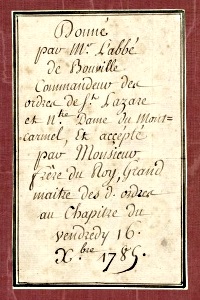 Donné
par Mr. L'abbé
de Bouville
Commandeur des
ordres de St. Lazare
et Ntre Dame du Mont-
carmel, Et accepté
par Monsieur
frère du Roy, Grand
maitre des d. ordres
au Chapitre du
vendredy 16.
Xbre 1785.